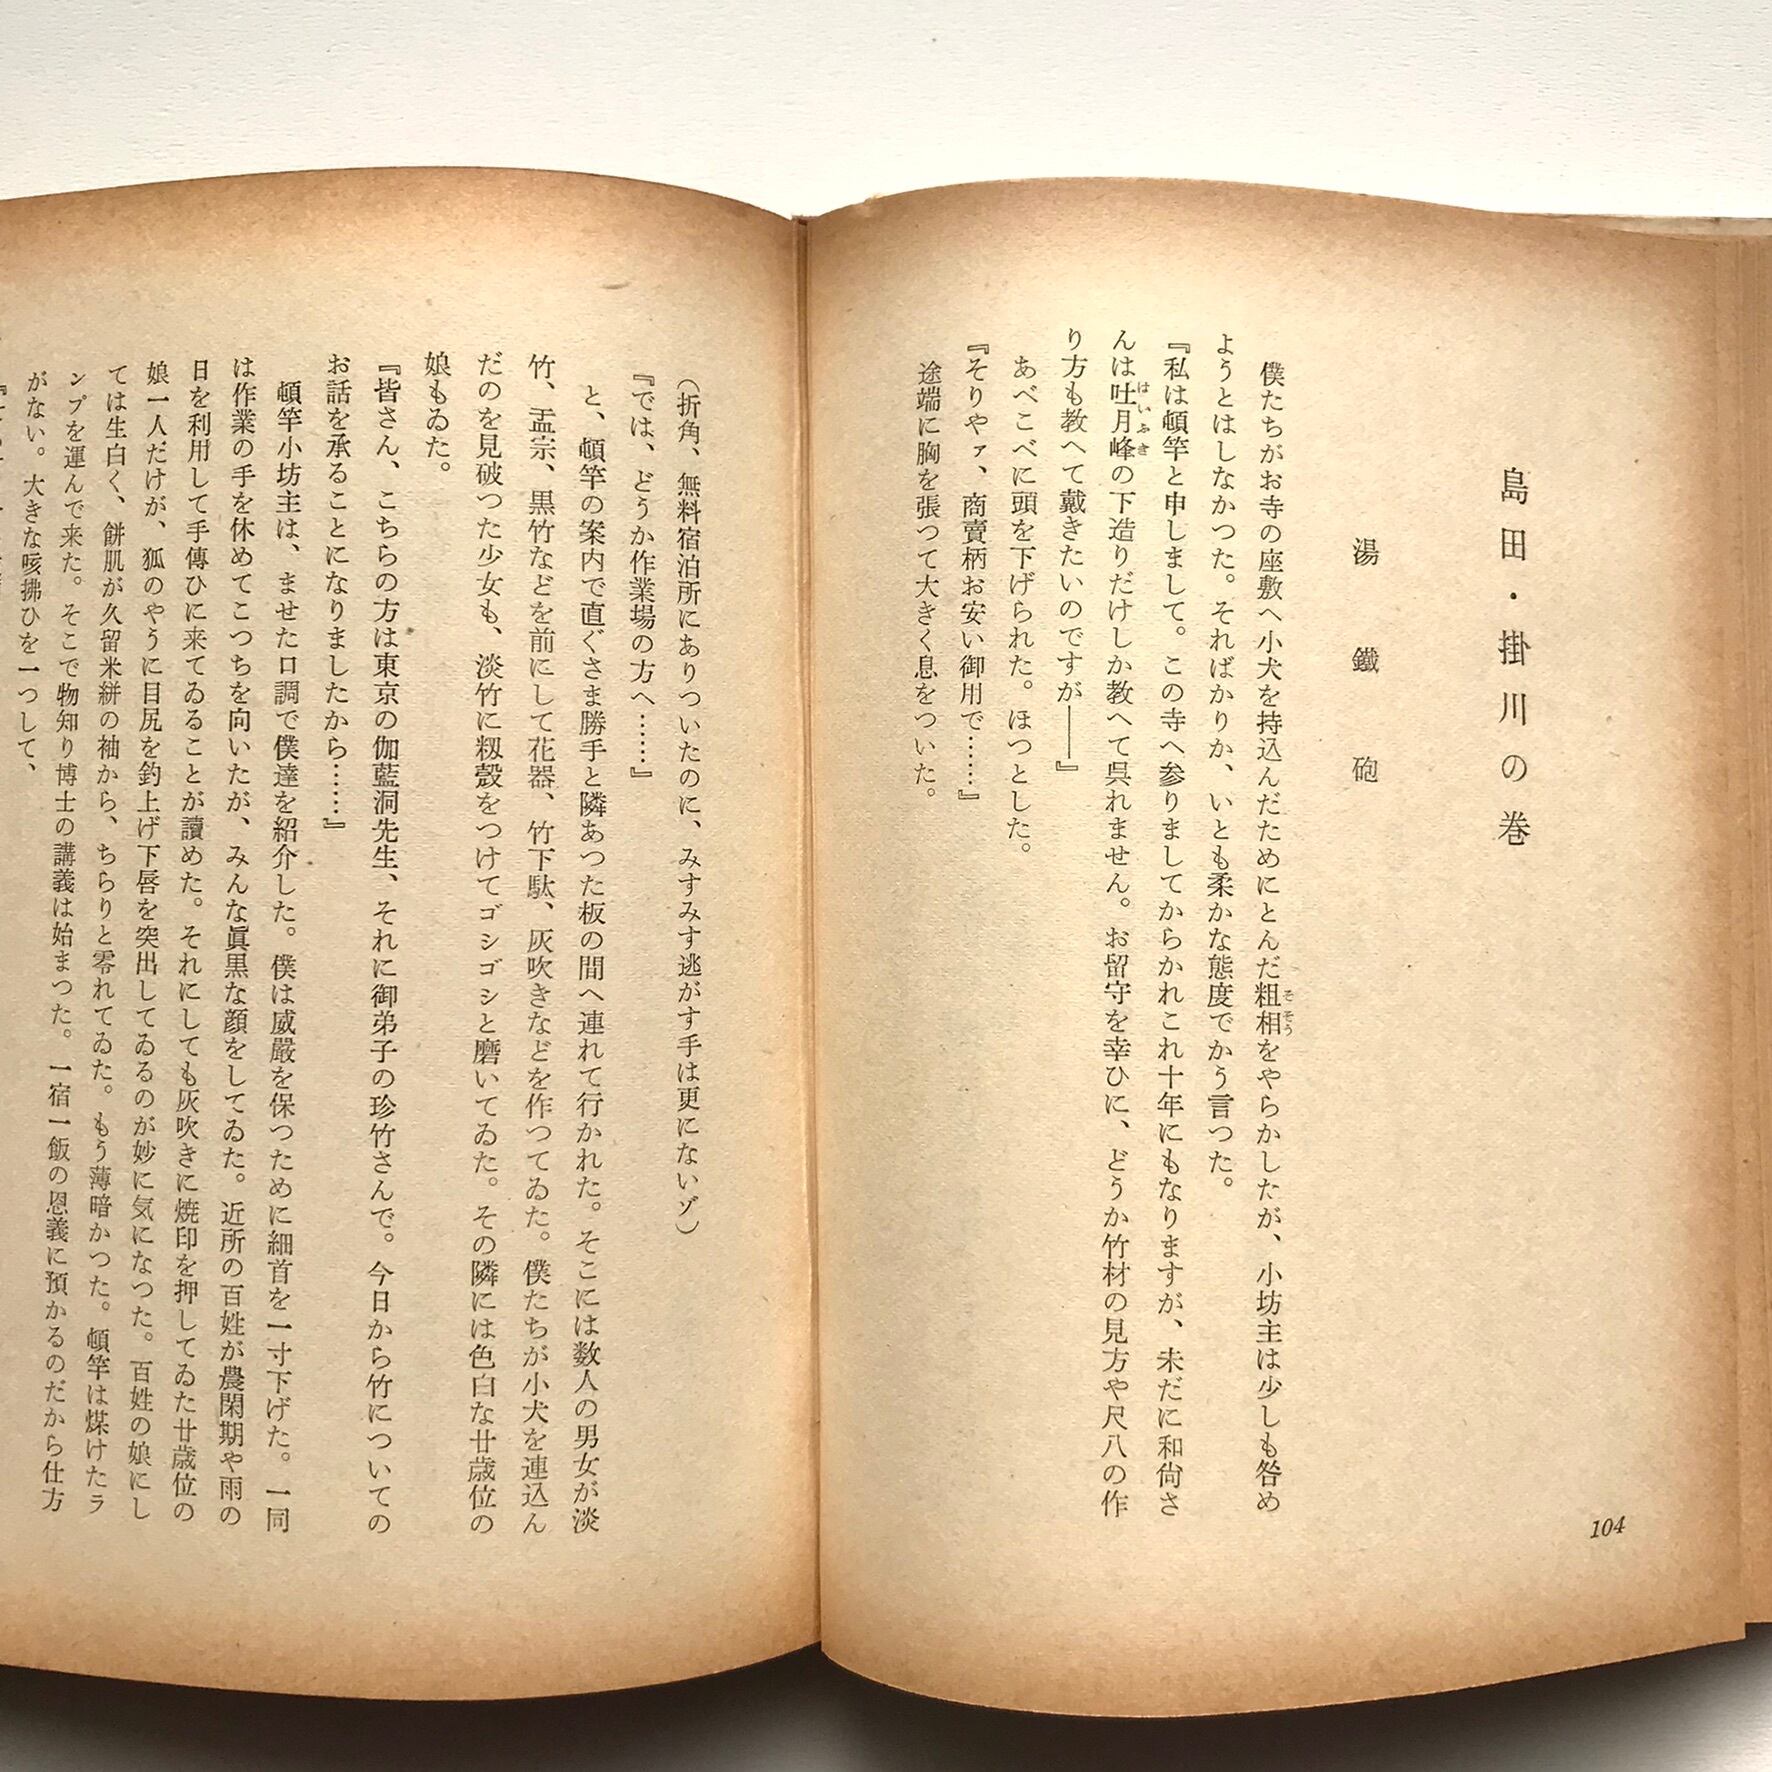 島田・掛川の巻
湯鐵砲
僕たちがお寺の座敷へ小犬を持込んだためにとんだ粗相をやらかしたが、小坊主は少しも咎め
そそう
ようとはしなかつた。そればかりか、いとも柔かな態度でかう言つた。
『私は頓竿と申しまして。この寺へ参りましてからかれこれ十年にもなりますが、未だに和尙さ
んは吐月峰の下造りだけしか教へて呉れません。お留守を幸ひに、どうか竹材の見方や尺八の作
はいふき
り方も教へて戴きたいのですが――』
あべこべに頭を下げられた。ほつとした。
『そりやァ、商賣柄お安い御用で……』
途端に胸を張つて大きく息をついた。
104
（折角、無料宿泊所にありついたのに、みすみす逃がす手は更にないゾ）
『では、どうか作業場の方へ……』
と、頓竿の案内で直ぐさま勝手と隣あつた板の間へ連れて行かれた。そこには数人の男女が淡
竹、孟宗、黒竹などを前にして花器、竹下駄、灰吹きなどを作つてゐた。僕たちが小犬を連込ん
だのを見破つた少女も、淡竹に籾殻をつけてゴシゴシと磨いてゐた。その隣には色白な廿歳位の
娘もゐた。
『皆さん、こちらの方は東京の伽藍洞先生、それに御弟子の珍竹さんで。今日から竹についての
お話を承ることになりましたから……』
頓竿小坊主は、ませた口調で僕達を紹介した。僕は威嚴を保つために細首を一寸下げた。一同
は作業の手を休めてこつちを向いたが、みんな眞黒な顔をしてゐた。近所の百姓が農閑期や雨の
日を利用して手傳ひに来てゐることが讀めた。それにしても灰吹きに焼印を押してゐた廿歳位の
娘一人だけが、狐のやうに目尻を釣上げ下唇を突出してゐるのが妙に気になつた。百姓の娘にし
ては生白く、餅肌が久留米絣の袖から、ちらりと零れてゐた。もう薄暗かつた。頓竿は煤けたラ
ンプを運んで来た。そこで物知り博士の講義は始まつた。一宿一飯の恩義に預かるのだから仕方
がない。大きな咳拂ひを一つして、